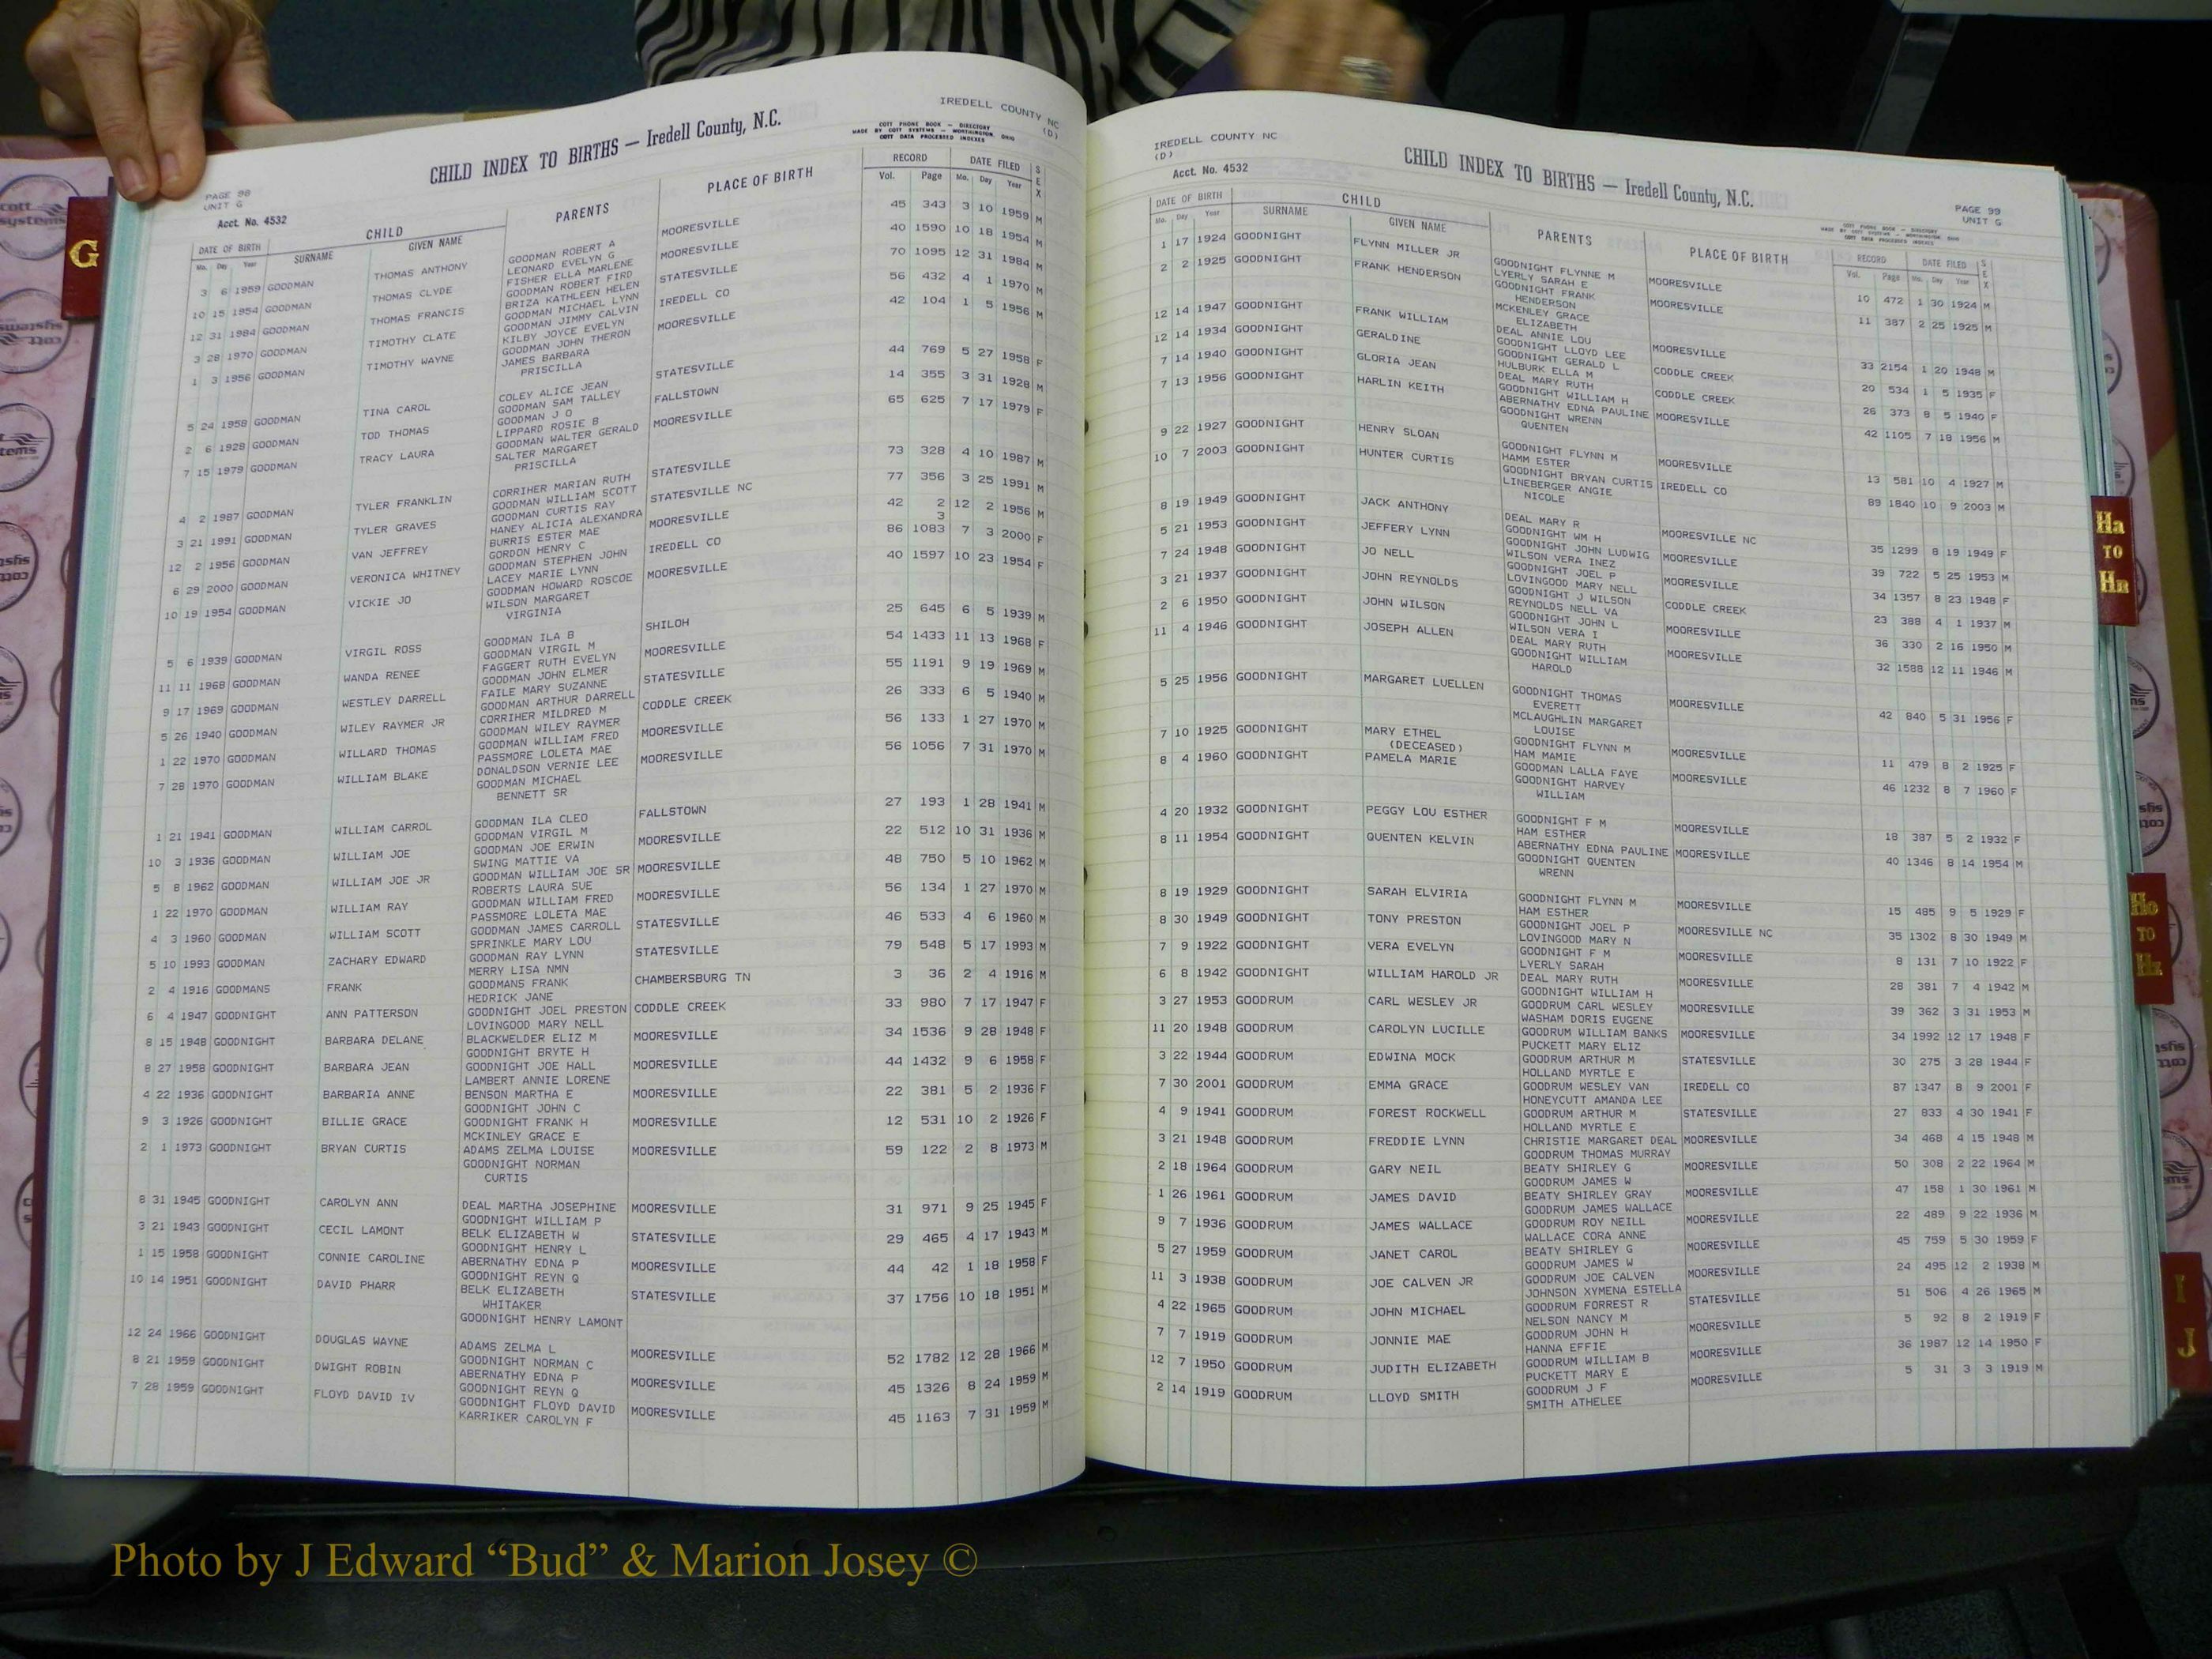 IREDELL COUNTY NC
(D)
CHILD INDEX TO BIRTHS — Iredell County, N.C.
COTT PHONE BOOK — DIRECTORY
MADE BY COTT SYSTEMS — WORTHINGTON, OHIO
COTT DATA PROCESSED INDEXES
PAGE 98
UNIT G
Acct. No. 4532
DATE OF BIRTH CHILD PARENTS PLACE OF BIRTH RECORD DATE FILED SEX
Mo. Day Year SURNAME GIVEN NAME Vol. Page Mo. Day Year
3 6 1959 GOODMAN THOMAS ANTHONY GOODMAN ROBERT A MOORESVILLE 45 343 3 10 1959 M
LEONARD EVELYN G
10 15 1954 GOODMAN THOMAS CLYDE FISHER ELLA MARLENE MOORESVILLE 40 1590 10 18 1954 M
GOODMAN ROBERT FIRD
12 31 1984 GOODMAN THOMAS FRANCIS BRIZA KATHLEEN HELEN STATESVILLE 70 1095 12 31 1984 M
GOODMAN MICHAEL LYNN
3 28 1970 GOODMAN TIMOTHY CLATE GOODMAN JIMMY CALVIN IREDELL CO 56 432 4 1 1970 M
KILBY JOYCE EVELYN
1 3 1956 GOODMAN TIMOTHY WAYNE GOODMAN JOHN THERON MOORESVILLE 42 104 1 5 1956 M
JAMES BARBARA
PRISCILLA
5 24 1958 GOODMAN TINA CAROL COLEY ALICE JEAN STATESVILLE 44 769 5 27 1958 F
GOODMAN SAM TALLEY
2 6 1928 GOODMAN TOD THOMAS GOODMAN J O FALLSTOWN 14 355 3 31 1928 M
LIPPARD ROSIE B
7 15 1979 GOODMAN TRACY LAURA GOODMAN WALTER GERALD MOORESVILLE 65 625 7 17 1979 F
SALTER MARGARET
PRISCILLA
4 2 1987 GOODMAN TYLER FRANKLIN CORRIHER MARIAN RUTH STATESVILLE 73 328 4 10 1987 M
GOODMAN WILLIAM SCOTT
3 21 1991 GOODMAN TYLER GRAVES GOODMAN CURTIS RAY STATESVILLE NC 77 356 3 25 1991 M
HANEY ALICIA ALEXANDRA
12 2 1956 GOODMAN VAN JEFFREY BURRIS ESTER MAE MOORESVILLE 42 2 12 2 1956 M
GORDON HENRY C 3
6 29 2000 GOODMAN VERONICA WHITNEY GOODMAN STEPHEN JOHN IREDELL CO 86 1083 7 3 2000 F
LACEY MARIE LYNN
10 19 1954 GOODMAN VICKIE JO GOODMAN HOWARD ROSCOE MOORESVILLE 40 1597 10 23 1954 F
WILSON MARGARET
VIRGINIA
5 6 1939 GOODMAN VIRGIL ROSS GOODMAN ILA B SHILOH 25 645 6 5 1939 M
GOODMAN VIRGIL M
11 11 1968 GOODMAN WANDA RENEE FAGGERT RUTH EVELYN MOORESVILLE 54 1433 11 13 1968 F
GOODMAN JOHN ELMER
9 17 1969 GOODMAN WESTLEY DARRELL FAILE MARY SUZANNE STATESVILLE 55 1191 9 19 1969 M
GOODMAN ARTHUR DARRELL
5 26 1940 GOODMAN WILEY RAYMER JR CORRIHER MILDRED M CODDLE CREEK 26 333 6 5 1940 M
GOODMAN WILEY RAYMER
1 22 1970 GOODMAN WILLARD THOMAS GOODMAN WILLIAM FRED MOORESVILLE 56 133 1 27 1970 M
PASSMORE LOLETA MAE
7 28 1970 GOODMAN WILLIAM BLAKE DONALDSON VERNIE LEE MOORESVILLE 56 1056 7 31 1970 M
GOODMAN MICHAEL
BENNETT SR
1 21 1941 GOODMAN WILLIAM CARROL GOODMAN ILA CLEO FALLSTOWN 27 193 1 28 1941 M
GOODMAN VIRGIL M
10 3 1936 GOODMAN WILLIAM JOE GOODMAN JOE ERWIN MOORESVILLE 22 512 10 31 1936 M
SWING MATTIE VA
5 8 1962 GOODMAN WILLIAM JOE JR GOODMAN WILLIAM JOE SR MOORESVILLE 48 750 5 10 1962 M
ROBERTS LAURA SUE
1 22 1970 GOODMAN WILLIAM RAY GOODMAN WILLIAM FRED MOORESVILLE 56 134 1 27 1970 M
PASSMORE LOLETA MAE
4 3 1960 GOODMAN WILLIAM SCOTT GOODMAN JAMES CARROLL STATESVILLE 46 533 4 6 1960 M
SPRINKLE MARY LOU
5 10 1993 GOODMAN ZACHARY EDWARD GOODMAN RAY LYNN STATESVILLE 79 548 5 17 1993 M
MERRY LISA NMN
2 4 1916 GOODMANS FRANK GOODMANS FRANK CHAMBERSBURG TN 3 36 2 4 1916 M
HEDRICK JANE
6 4 1947 GOODNIGHT ANN PATTERSON GOODNIGHT JOEL PRESTON CODDLE CREEK 33 980 7 17 1947 F
LOVINGOOD MARY NELL
8 15 1948 GOODNIGHT BARBARA DELANE BLACKWELDER ELIZ M MOORESVILLE 34 1536 9 28 1948 F
GOODNIGHT BRYTE H
8 27 1958 GOODNIGHT BARBARA JEAN GOODNIGHT JOE HALL MOORESVILLE 44 1432 9 6 1958 F
LAMBERT ANNIE LORENE
4 22 1936 GOODNIGHT BARBARIA ANNE BENSON MARTHA E MOORESVILLE 22 381 5 2 1936 F
GOODNIGHT JOHN C
9 3 1926 GOODNIGHT BILLIE GRACE GOODNIGHT FRANK H MOORESVILLE 12 531 10 2 1926 F
MCKINLEY GRACE E
2 1 1973 GOODNIGHT BRYAN CURTIS ADAMS ZELMA LOUISE MOORESVILLE 59 122 2 8 1973 M
GOODNIGHT NORMAN
CURTIS
8 31 1945 GOODNIGHT CAROLYN ANN DEAL MARTHA JOSEPHINE MOORESVILLE 31 971 9 25 1945 F
GOODNIGHT WILLIAM P
3 21 1943 GOODNIGHT CECIL LAMONT BELK ELIZABETH W STATESVILLE 29 465 4 17 1943 M
GOODNIGHT HENRY L
1 15 1958 GOODNIGHT CONNIE CAROLINE ABERNATHY EDNA P MOORESVILLE 44 42 1 18 1958 F
GOODNIGHT REYN Q
10 14 1951 GOODNIGHT DAVID PHARR BELK ELIZABETH STATESVILLE 37 1756 10 18 1951 M
WHITAKER
GOODNIGHT HENRY LAMONT
12 24 1966 GOODNIGHT DOUGLAS WAYNE ADAMS ZELMA L MOORESVILLE 52 1782 12 28 1966 M
GOODNIGHT NORMAN C
8 21 1959 GOODNIGHT DWIGHT ROBIN ABERNATHY EDNA P MOORESVILLE 45 1326 8 24 1959 M
GOODNIGHT REYN Q
7 28 1959 GOODNIGHT FLOYD DAVID IV GOODNIGHT FLOYD DAVID MOORESVILLE 45 1163 7 31 1959 M
KARRIKER CAROLYN F
IREDELL COUNTY NC
(D)
Acct. No. 4532
CHILD INDEX TO BIRTHS — Iredell County, N.C.
PAGE 99
UNIT G
COTT PHONE BOOK — DIRECTORY
MADE BY COTT SYSTEMS — WORTHINGTON, OHIO
COTT DATA PROCESSED INDEXES
DATE OF BIRTH CHILD PARENTS PLACE OF BIRTH RECORD DATE FILED SEX
Mo. Day Year SURNAME GIVEN NAME Vol. Page Mo. Day Year
1 17 1924 GOODNIGHT FLYNN MILLER JR GOODNIGHT FLYNNE M MOORESVILLE 10 472 1 30 1924 M
LYERLY SARAH E
2 2 1925 GOODNIGHT FRANK HENDERSON GOODNIGHT FRANK MOORESVILLE 11 387 2 25 1925 M
HENDERSON
MCKENLEY GRACE
ELIZABETH
12 14 1947 GOODNIGHT FRANK WILLIAM DEAL ANNIE LOU MOORESVILLE 33 2154 1 20 1948 M
GOODNIGHT LLOYD LEE
12 14 1934 GOODNIGHT GERALDINE GOODNIGHT GERALD L CODDLE CREEK 20 534 1 5 1935 F
HULBURK ELLA M
7 14 1940 GOODNIGHT GLORIA JEAN DEAL MARY RUTH CODDLE CREEK 26 373 8 5 1940 F
GOODNIGHT WILLIAM H
7 13 1956 GOODNIGHT HARLIN KEITH ABERNATHY EDNA PAULINE MOORESVILLE 42 1105 7 18 1956 M
GOODNIGHT WRENN
QUENTEN
9 22 1927 GOODNIGHT HENRY SLOAN GOODNIGHT FLYNN M MOORESVILLE 13 581 10 4 1927 M
HAMM ESTER
10 7 2003 GOODNIGHT HUNTER CURTIS GOODNIGHT BRYAN CURTIS IREDELL CO 89 1840 10 9 2003 M
LINEBERGER ANGIE
NICOLE
8 19 1949 GOODNIGHT JACK ANTHONY DEAL MARY R MOORESVILLE NC 35 1299 8 19 1949 F
GOODNIGHT WM H
5 21 1953 GOODNIGHT JEFFERY LYNN GOODNIGHT JOHN LUDWIG MOORESVILLE 39 722 5 25 1953 M
WILSON VERA INEZ
7 24 1948 GOODNIGHT JO NELL GOODNIGHT JOEL P MOORESVILLE 34 1357 8 23 1948 F
LOVINGOOD MARY NELL
3 21 1937 GOODNIGHT JOHN REYNOLDS GOODNIGHT J WILSON CODDLE CREEK 23 388 4 1 1937 M
REYNOLDS NELL VA
2 6 1950 GOODNIGHT JOHN WILSON GOODNIGHT JOHN L MOORESVILLE 36 330 2 16 1950 M
WILSON VERA I
11 4 1946 GOODNIGHT JOSEPH ALLEN DEAL MARY RUTH MOORESVILLE 32 1588 12 11 1946 M
GOODNIGHT WILLIAM
HAROLD
5 25 1956 GOODNIGHT MARGARET LUELLEN GOODNIGHT THOMAS MOORESVILLE 42 840 5 31 1956 F
EVERETT
MCLAUGHLIN MARGARET
LOUISE
7 10 1925 GOODNIGHT MARY ETHEL GOODNIGHT FLYNN M MOORESVILLE 11 479 8 2 1925 F
(DECEASED) HAM MAMIE
8 4 1960 GOODNIGHT PAMELA MARIE GOODMAN LALLA FAYE MOORESVILLE 46 1232 8 7 1960 F
GOODNIGHT HARVEY
WILLIAM
4 20 1932 GOODNIGHT PEGGY LOU ESTHER GOODNIGHT F M MOORESVILLE 18 387 5 2 1932 F
HAM ESTHER
8 11 1954 GOODNIGHT QUENTEN KELVIN ABERNATHY EDNA PAULINE MOORESVILLE 40 1346 8 14 1954 M
GOODNIGHT QUENTEN
WRENN
8 19 1929 GOODNIGHT SARAH ELVIRIA GOODNIGHT FLYNN M MOORESVILLE 15 485 9 5 1929 F
HAM ESTHER
8 30 1949 GOODNIGHT TONY PRESTON GOODNIGHT JOEL P MOORESVILLE NC 35 1302 8 30 1949 M
LOVINGOOD MARY N
7 9 1922 GOODNIGHT VERA EVELYN GOODNIGHT F M MOORESVILLE 8 131 7 10 1922 F
LYERLY SARAH
6 8 1942 GOODNIGHT WILLIAM HAROLD JR DEAL MARY RUTH MOORESVILLE 28 381 7 4 1942 M
GOODNIGHT WILLIAM H
3 27 1953 GOODRUM CARL WESLEY JR GOODRUM CARL WESLEY MOORESVILLE 39 362 3 31 1953 M
WASHAM DORIS EUGENE
11 20 1948 GOODRUM CAROLYN LUCILLE GOODRUM WILLIAM BANKS MOORESVILLE 34 1992 12 17 1948 F
PUCKETT MARY ELIZ
3 22 1944 GOODRUM EDWINA MOCK GOODRUM ARTHUR M STATESVILLE 30 275 3 28 1944 F
HOLLAND MYRTLE E
7 30 2001 GOODRUM EMMA GRACE GOODRUM WESLEY VAN IREDELL CO 87 1347 8 9 2001 F
HONEYCUTT AMANDA LEE
4 9 1941 GOODRUM FOREST ROCKWELL GOODRUM ARTHUR M STATESVILLE 27 833 4 30 1941 F
HOLLAND MYRTLE E
3 21 1948 GOODRUM FREDDIE LYNN CHRISTIE MARGARET DEAL MOORESVILLE 34 468 4 15 1948 M
GOODRUM THOMAS MURRAY
2 18 1964 GOODRUM GARY NEIL BEATY SHIRLEY G MOORESVILLE 50 308 2 22 1964 M
GOODRUM JAMES W
1 26 1961 GOODRUM JAMES DAVID BEATY SHIRLEY GRAY MOORESVILLE 47 158 1 30 1961 M
GOODRUM JAMES WALLACE
9 7 1936 GOODRUM JAMES WALLACE GOODRUM ROY NEILL MOORESVILLE 22 489 9 22 1936 M
WALLACE CORA ANNE
5 27 1959 GOODRUM JANET CAROL BEATY SHIRLEY G MOORESVILLE 45 759 5 30 1959 F
GOODRUM JAMES W
11 3 1938 GOODRUM JOE CALVEN JR GOODRUM JOE CALVEN MOORESVILLE 24 495 12 2 1938 M
JOHNSON XYMENA ESTELLA
4 22 1965 GOODRUM JOHN MICHAEL GOODRUM FORREST R STATESVILLE 51 506 4 26 1965 M
NELSON NANCY M
7 7 1919 GOODRUM JONNIE MAE GOODRUM JOHN H MOORESVILLE 5 92 8 2 1919 F
HANNA EFFIE
12 7 1950 GOODRUM JUDITH ELIZABETH GOODRUM WILLIAM B MOORESVILLE 36 1987 12 14 1950 F
PUCKETT MARY E
2 14 1919 GOODRUM LLOYD SMITH GOODRUM J F MOORESVILLE 5 31 3 3 1919 M
SMITH ATHELEE
G
Ha
TO
Hn
Ho
TO
Hz
I
J
cott
systems
Photo by J Edward “Bud” & Marion Josey ©